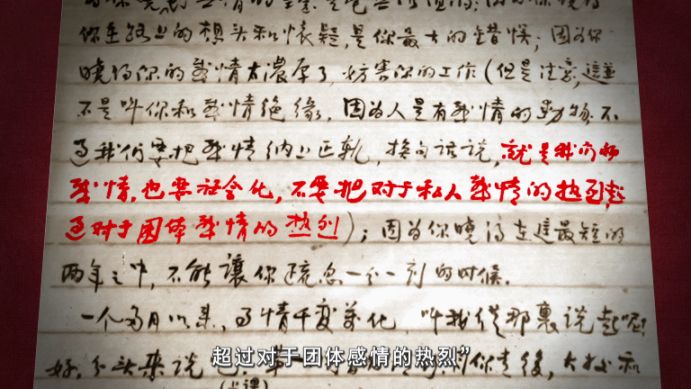 你在路上的想头和怀疑，是你最大的错误；因为你
晓得你的感情太濃厚了，妨害你的工作（但是注意，這並
不是叫你和感情絕缘，因为人是有感情的動物，不
过我们要把感情纳入正軌，换句话説，就是我们的
感情，也要社会化，不要把对于私人感情的热烈超
过对于团体感情的热烈）；因为你晓得在這最短的
两年之中，不能讓你疏忽一分一刻的时候。
一个多月以来，事情千变萬化，叫我從那裏説起呢
好，分头来説
超过对于团体感情的热烈”